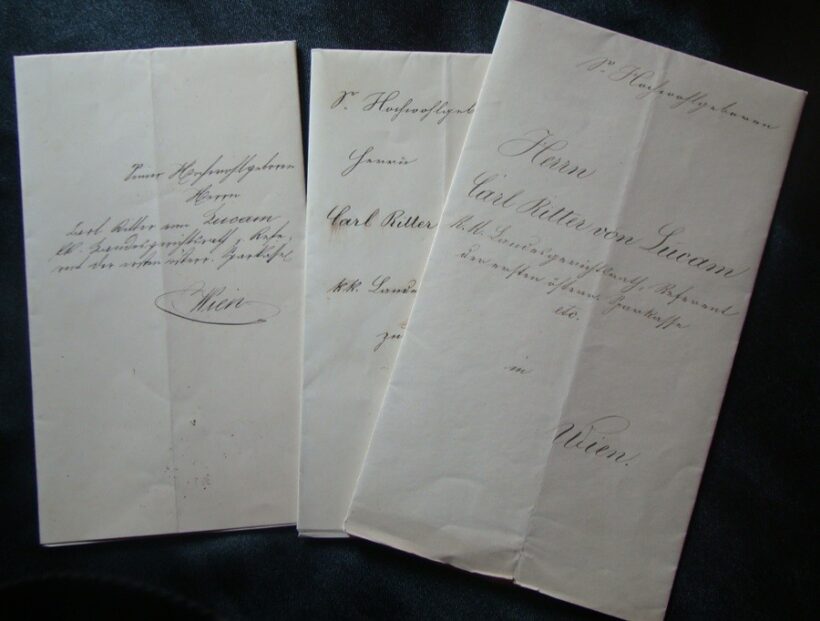 Seiner Hochwohlgeboren
Herrn
Carl Ritter von Lucam
kk. Landesgerichtsrath, Refe.
der ersten österr. Sparkasse
Wien
Sr. Hochwohlgeb
Herrn
Carl Ritter
k.k. Lande
zu
Sr. Hochwohlgeboren
Herrn
Carl Ritter von Lucam
k.k. Landesgerichtsrath, Referent
der ersten österr. Sparkasse
etc.
in
Wien.